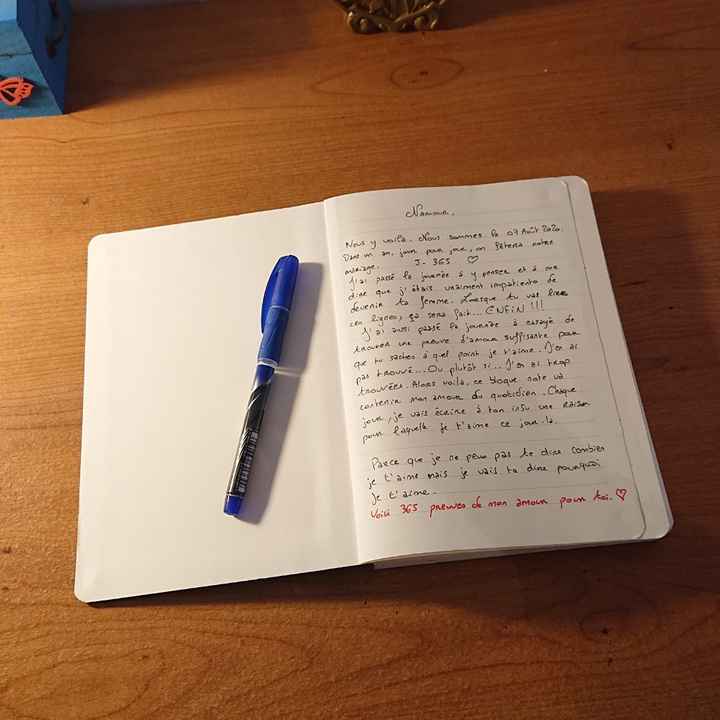 Namour,
Nous y voilà. Nous sommes le 07 Août 2020.
Dans un an, jour pour jour, on fêtera notre
mariage. J-365 ♡
J'ai passé la journée à y penser et à me
dire que j'étais vraiment impatiente de
devenir ta femme. Lorsque tu vas lire
ces lignes, ça sera fait... ENFIN !!!
J'ai aussi passé la journée à essayé de
trouver une preuve d'amour suffisante pour
que tu saches à quel point je t'aime. J'en ai
pas trouvé... Ou plutôt si... J'en ai trop
trouvées. Alors voilà, ce bloque note va
contenir mon amour du quotidien. Chaque
jour, je vais écrire à ton insu une raison
pour laquelle je t'aime ce jour-là.
Parce que je ne peux pas te dire combien
je t'aime mais je vais te dire pourquoi
je t'aime.
Voici 365 preuves de mon amour pour toi. ♡